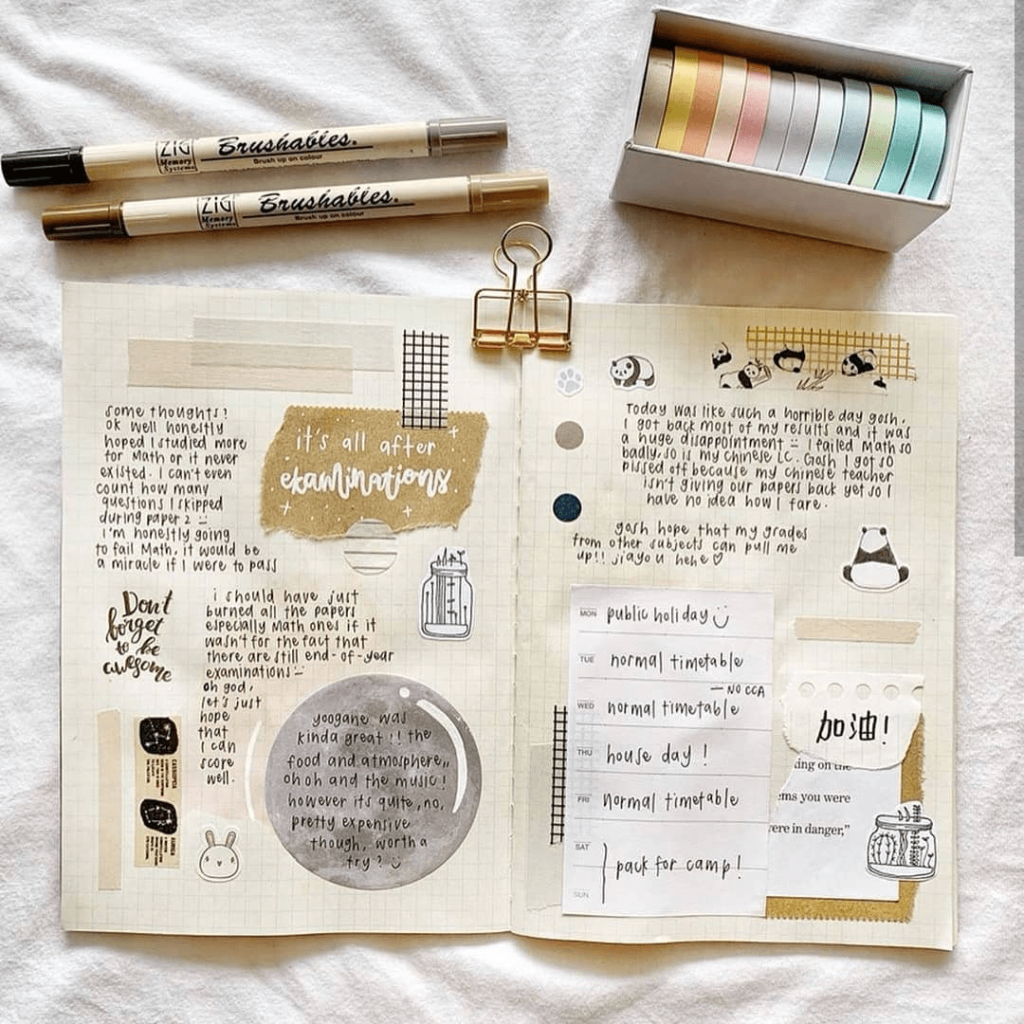 ZIG
Memory
Systems
Brushables.
Brush up on colour
ZIG
Memory
Systems
Brushables.
Brush up on colour
some thoughts!
ok well honestly
hoped I studied more
for Math or it never
existed. I can't even
count how many
questions I skipped
during paper 2
I'm honestly going
to fail Math, it would be
a miracle if I were to pass
it's all after
examinations
Don't
forget
to be
awesome
i should have just
burned all the papers
especially Math ones if it
wasn't for the fact that
there are still end-of-year
examinations
oh god,
let's just
hope
that
I can
score
well.
yoogane was
kinda great!! the
food and atmosphere,,
oh oh and the music!
however its quite, no,
pretty expensive
though, worth a
try? :)
Today was like such a horrible day gosh.
I got back most of my results and it was
a huge disappointment I failed Math so
badly, so is my chinese LC. Gosh I got so
pissed off because my chinese teacher
isn't giving our papers back yet so I
have no idea how I fare.
gosh hope that my grades
from other subjects can pull me
up!! jiayou hehe ♡
MON public holiday :)
TUE normal timetable
— NO CCA
WED normal timetable
THU house day!
FRI normal timetable
SAT
pack for camp!
SUN
加油!
ing on the
ems you were
ere in danger,”